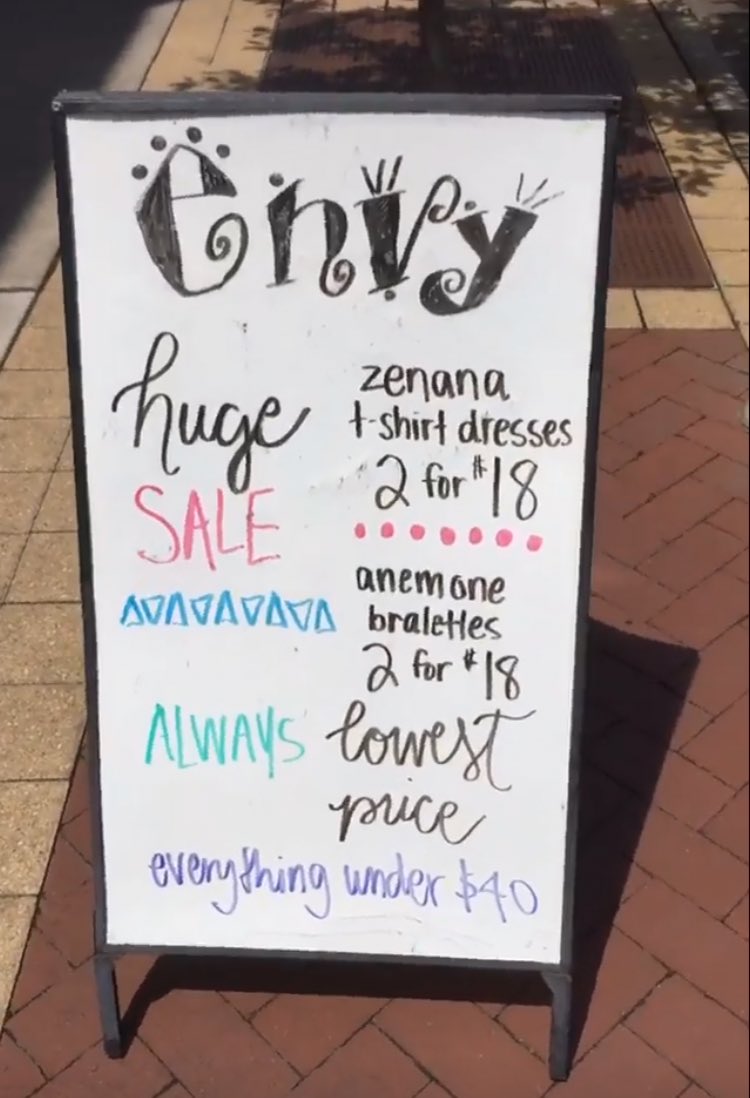 envy
huge
SALE
zenana
t-shirt dresses
2 for $18
anemone
bralettes
2 for $18
ALWAYS lowest
price
everything under $40